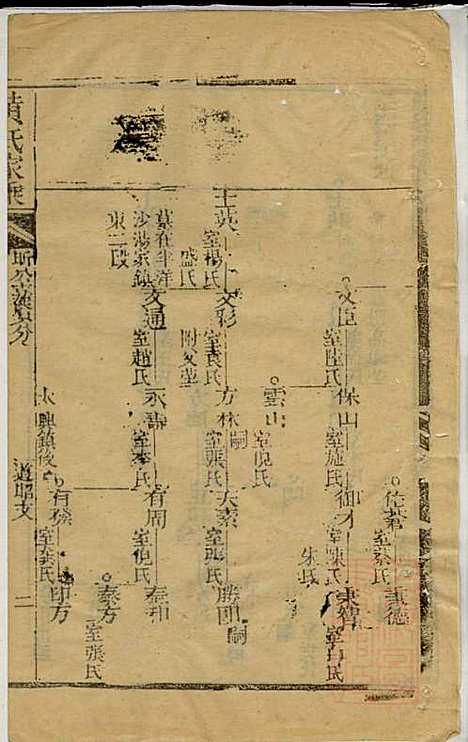 佐君
室蔡氏
秉德
文臣
室陸氏
保山
室施氏
御才
室陳氏
朱氏
秉智
室申氏
雲山
室倪氏
士英
室楊氏
盛氏
文彩
室袁氏
附父塋
方林
嗣
室張氏
大素
室張氏
勝國
嗣
墓在半洋
沙湯家鎮
東二段
文通
室趙氏
永壽
室李氏
有周
室倪氏
泰和
泰方
室張氏
大興鎮後
有發
室龔氏
印方
黃氏家乘
道昭支
二